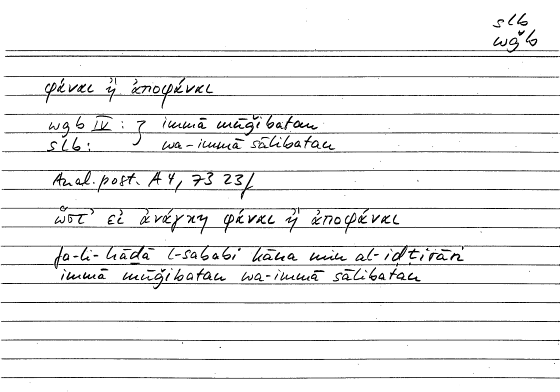 slb
wǧb
φάναι ἢ ἀποφάναι
wǧb IV : } immā mūǧibatan
slb : wa-immā sālibatan
Anal. post. A 4, 73 23f
ὥστ' εἰ ἀνάγκη φάναι ἢ ἀποφάναι
fa-li-hāḏā l-sababi kāna min al-iḍṭirāri
immā mūǧibatan wa-immā sālibatan